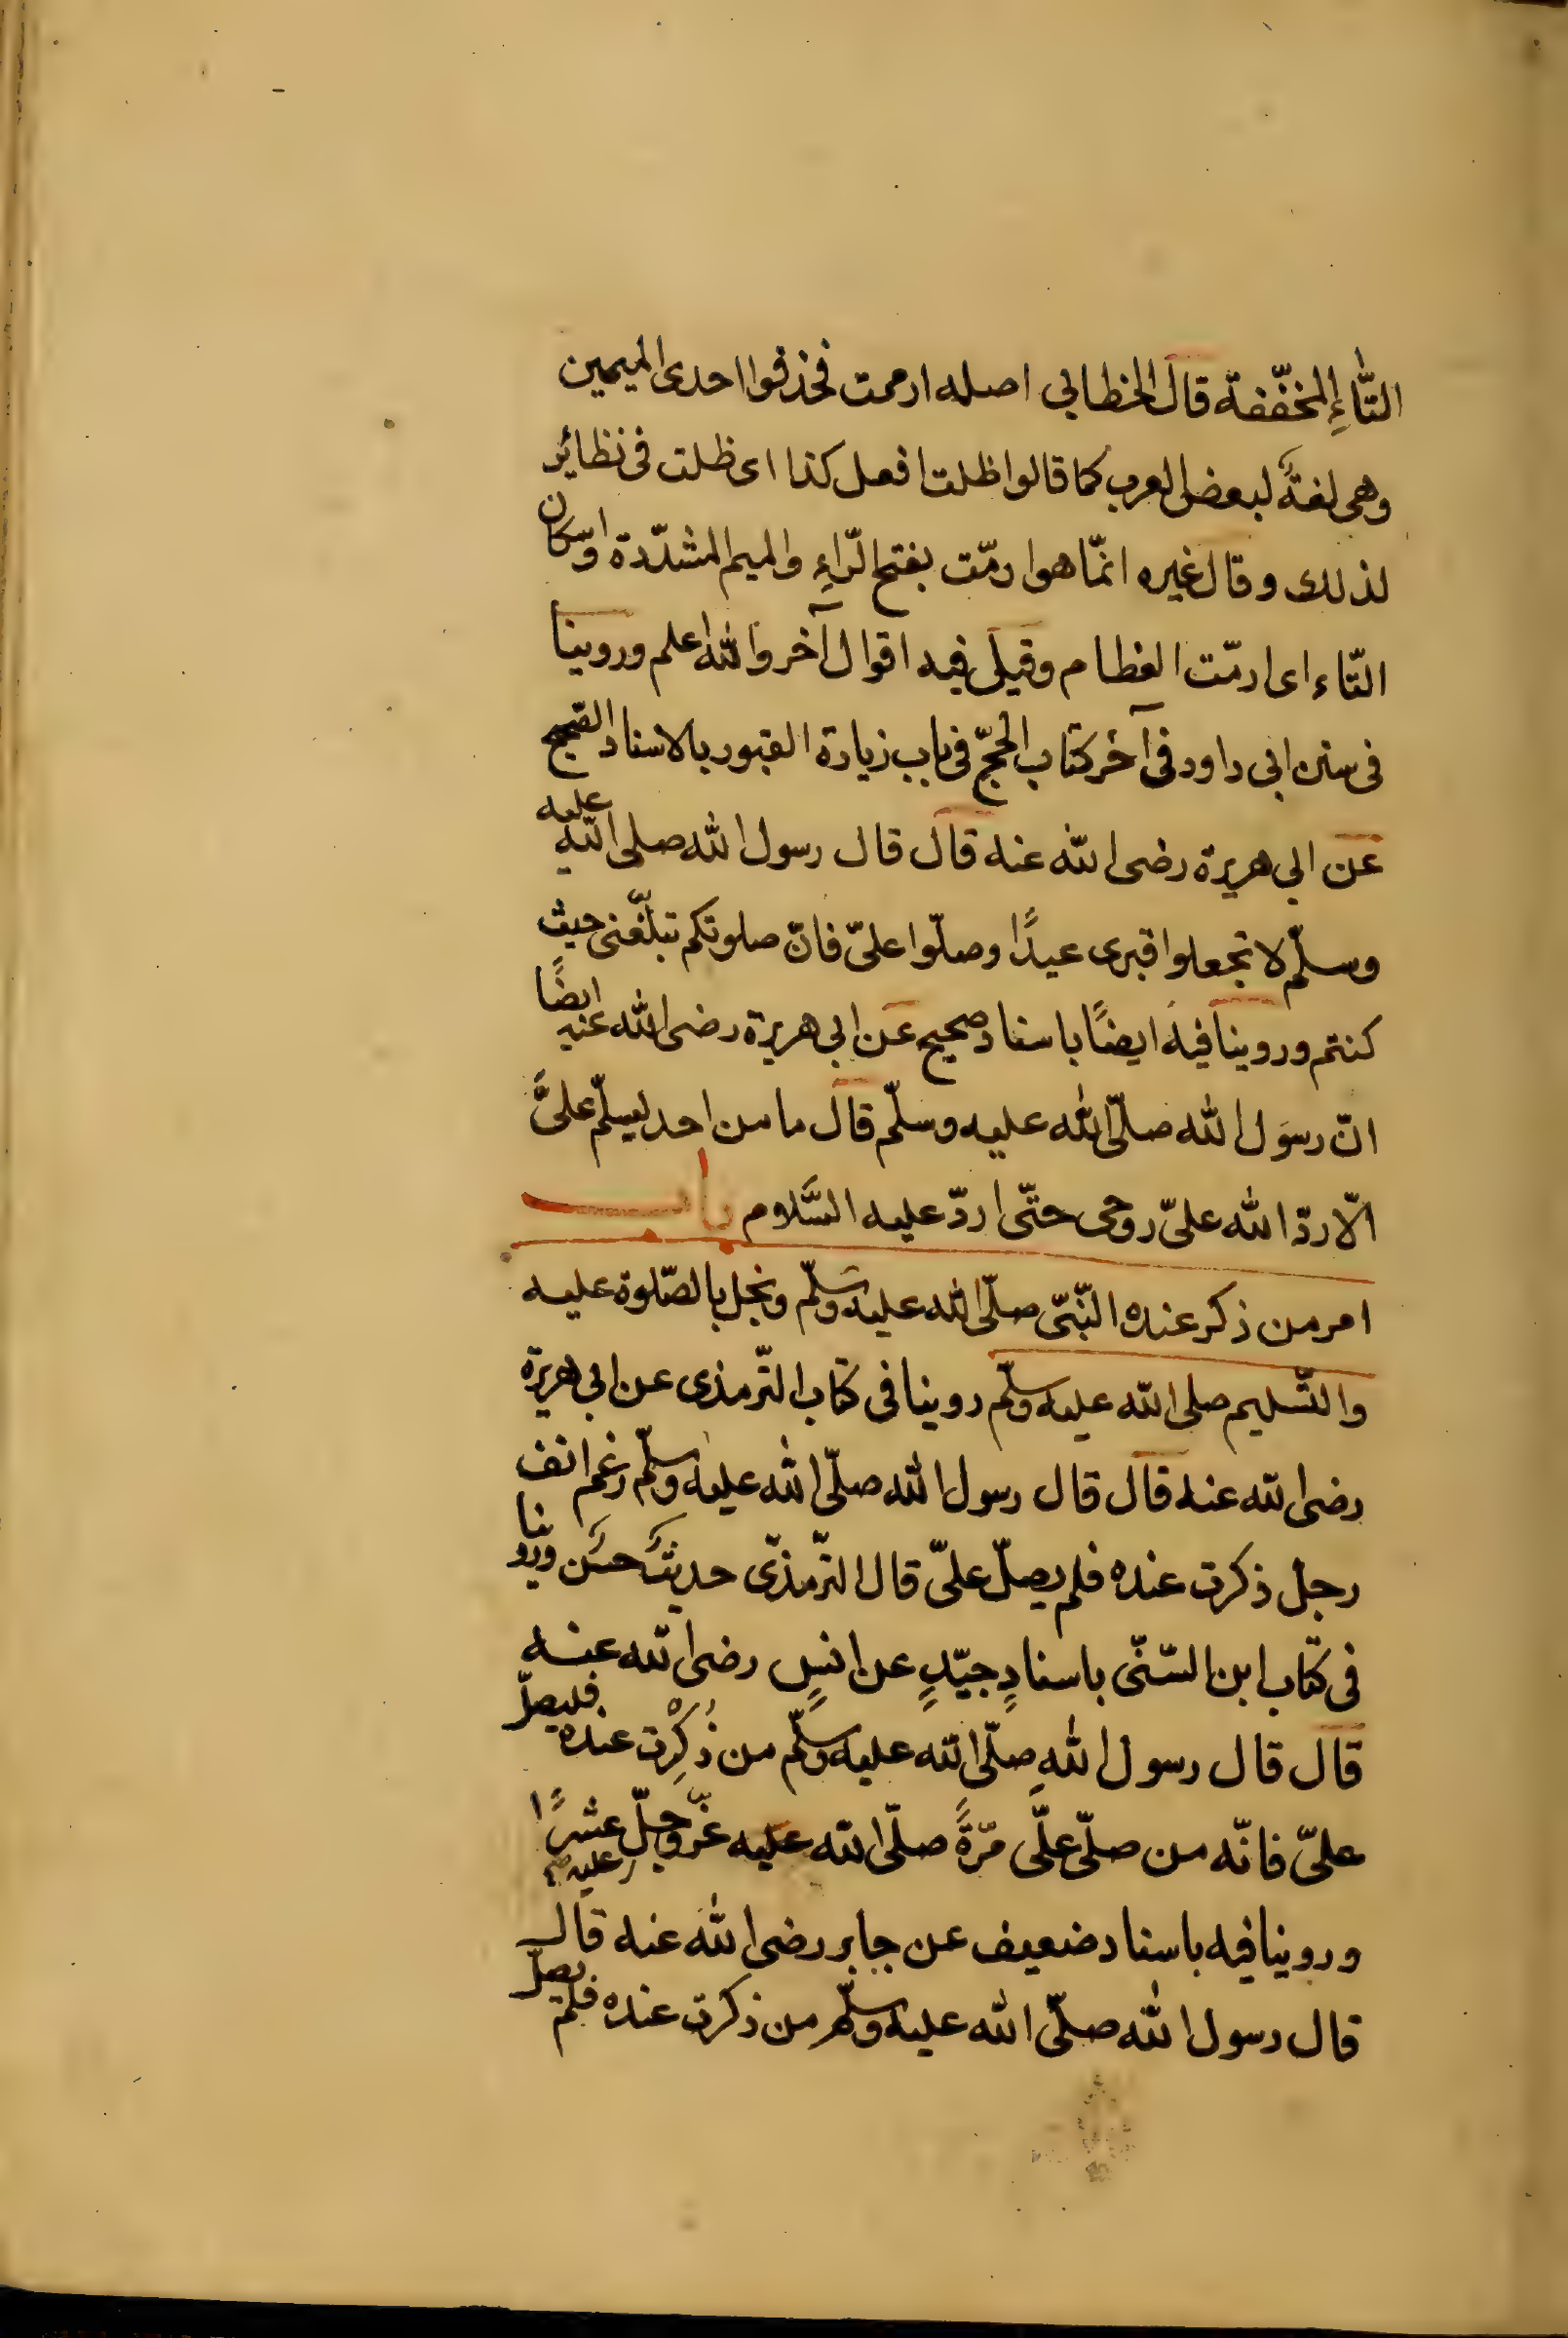 التّاءِ المخفّفة قال الخطابي اصله ارممت فحذفوا احدى الميمين
وهى لغةٌ لبعض العرب كما قالوا ظلت افعل كذا اى ظلت فى نظائر
لذلك وقال غيره انّما هو ارمّت بفتح الرّاءِ والميم المشدّدة واسكان
التّاء اى ارمّت العظام وقيل فيه اقوال آخر والله اعلم وروينا
فى سنن ابى داود فى آخر كتاب الحجّ فى باب زيارة القبور بالاسناد الصحيح
عن ابي هريرة رضى الله عنه قال قال رسول الله صلى الله عليه
وسلّم لا تجعلوا قبرى عيدًا وصلّوا علىّ فانّ صلوتكم تبلّغنى حيث
كنتم وروينا فيه ايضًا باسناد صحيح عن ابى هريرة رضى الله عنه ايضًا
انّ رسول الله صلّى الله عليه وسلّم قال ما من احد يسلّم علىَّ
الّا ردّ الله علىّ روحى حتّى اردّ عليه السَّلام باب
امر من ذكر عنده النّبىّ صلّى الله عليه وسلّم ونجل بالصّلوة عليه
والتّسليم صلى الله عليه وسلّم روينا فى كتاب التّرمذى عن ابى هريرة
رضى الله عنه قال قال رسول الله صلّى الله عليه وسلّم رغم انف
رجل ذكرت عنده فلم يصلّ علىّ قال التّرمذىّ حديثٌ حسنٌ وروينا
فى كتاب ابن السّنّى باسنادٍ جيّدٍ عن انسٍ رضى الله عنه
قال قال رسول اللهِ صلّى الله عليه وسلّم من ذُكِرْت عنده فليصلّ
علىّ فانّه من صلّى علىَّ مرّةً صلّى الله عليه عزّ وجلّ عشرًا
عليه صح
وروينا فيه باسناد ضعيف عن جابر رضى الله عنه قال
قال رسول الله صلّى الله عليه وسلّم من ذكرت عنده فلم يصلّ